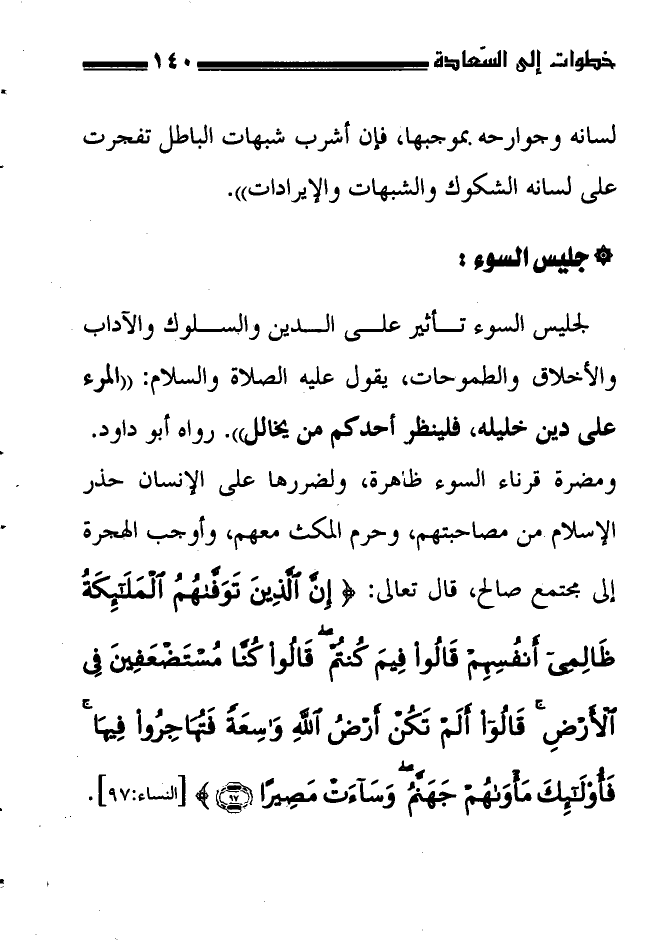 خطوات إلى السّعادة ١٤٠
لسانه وجوارحه بموجبها، فإن أشرب شبهات الباطل تفجرت
على لسانه الشكوك والشبهات والإيرادات)).
۞ جليس السوء :
لجليس السوء تـأثير علـى الـدين والسـلوك والآداب
والأخلاق والطموحات، يقول عليه الصلاة والسلام: ((المرء
على دين خليله، فلينظر أحدكم من يخالل)). رواه أبو داود.
ومضرة قرناء السوء ظاهرة، ولضررها على الإنسان حذر
الإسلام من مصاحبتهم، وحرم المكث معهم، وأوجب الهجرة
إلى مجتمع صالح، قال تعالى: ﴿ إِنَّ ٱلَّذِينَ تَوَفَّىٰهُمُ ٱلْمَلَـٰٓئِكَةُ
ظَالِمِىٓ أَنفُسِهِمْ قَالُوا۟ فِيمَ كُنتُمْ ۖ قَالُوا۟ كُنَّا مُسْتَضْعَفِينَ فِى
ٱلْأَرْضِ ۚ قَالُوٓا۟ أَلَمْ تَكُنْ أَرْضُ ٱللَّهِ وَٰسِعَةً فَتُهَاجِرُوا۟ فِيهَا ۚ
فَأُو۟لَـٰٓئِكَ مَأْوَىٰهُمْ جَهَنَّمُ ۖ وَسَآءَتْ مَصِيرًا ٩٧ ﴾ [النساء:٩٧].